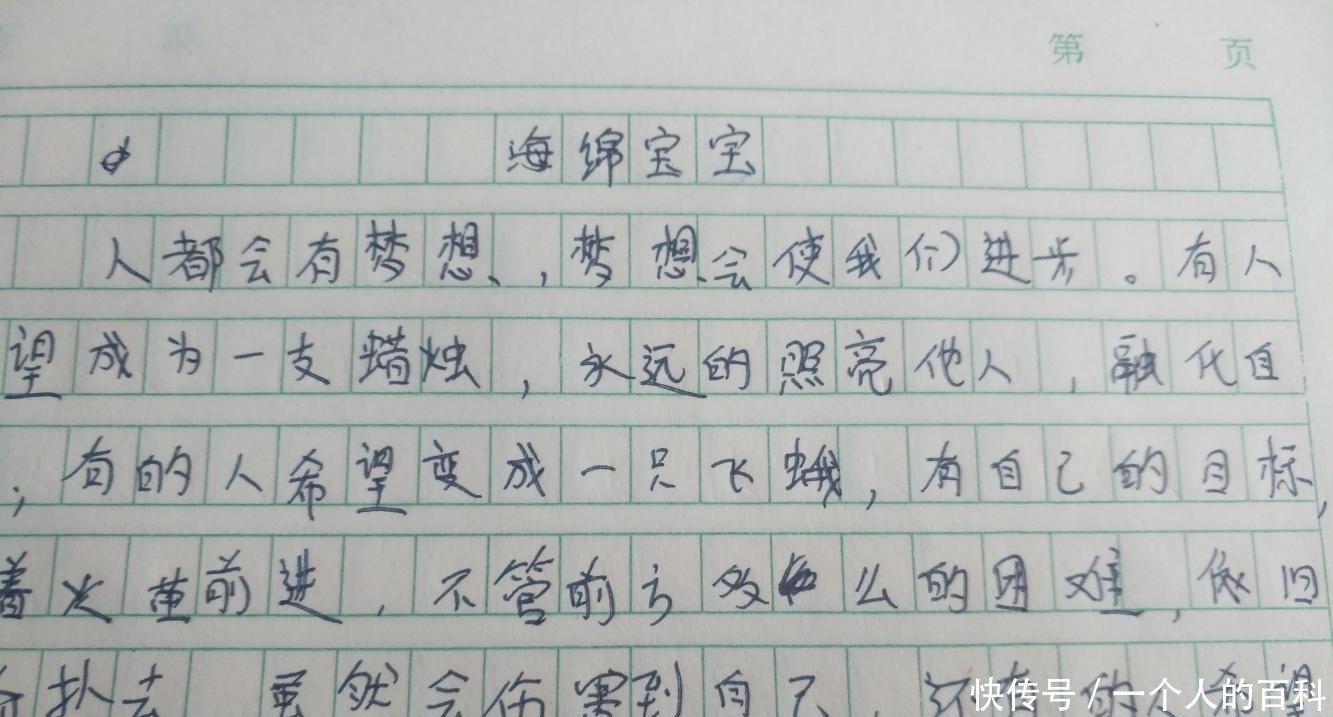 第 页
海绵宝宝
人都会有梦想,梦想会使我们进步。有人
望成为一支蜡烛,永远的照亮他人,融化自
;有的人希望变成一只飞蛾,有自己的目标,
着火苗前进,不管前方多么的困难,依旧
扑去 虽然会伤害到自己,还有的人希望
快传号/一个人的百科